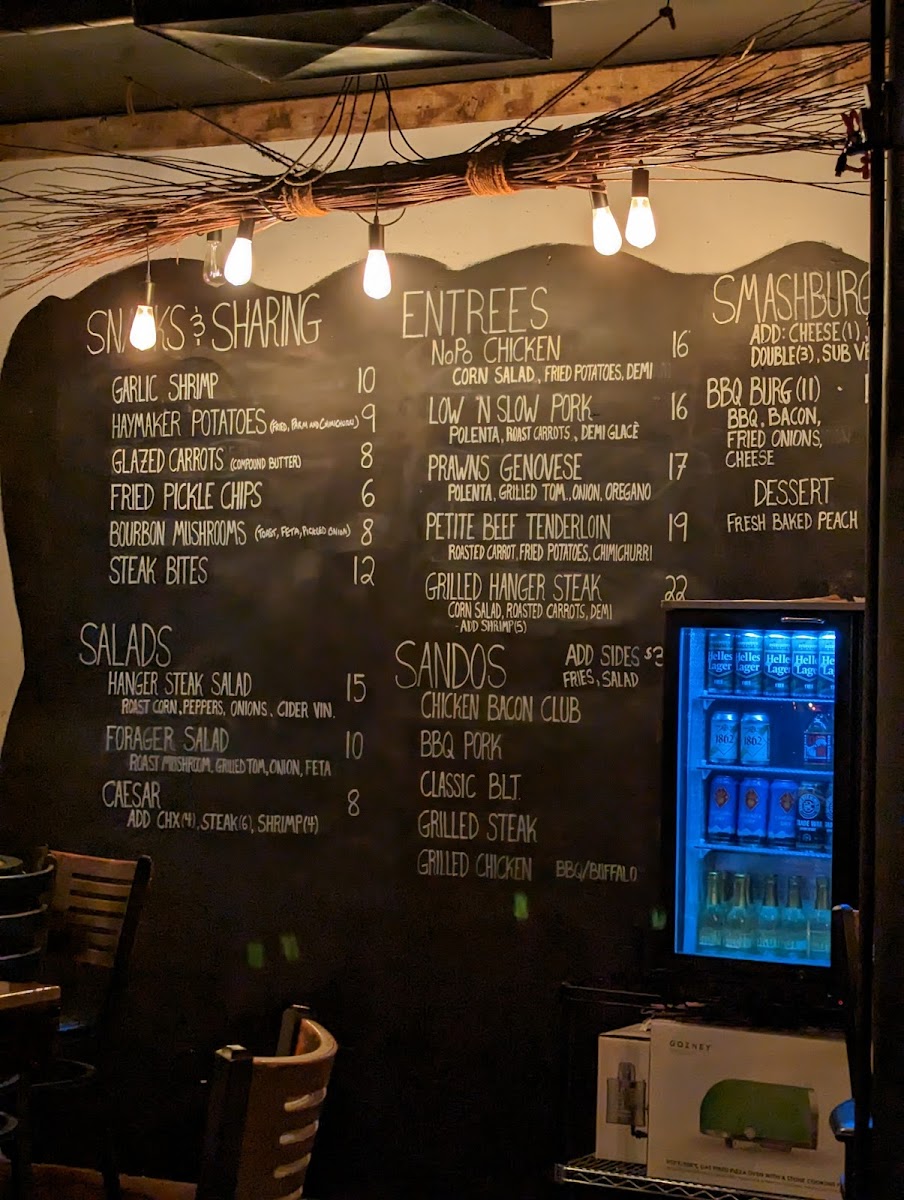 SNACKS & SHARING
GARLIC SHRIMP 10
HAYMAKER POTATOES (FRIED, PARM AND CHIMICHURRI) 9
GLAZED CARROTS (COMPOUND BUTTER) 8
FRIED PICKLE CHIPS 6
BOURBON MUSHROOMS (TOAST, FETA, PICKLED ONION) 8
STEAK BITES 12
SALADS
HANGER STEAK SALAD 15
ROAST CORN, PEPPERS, ONIONS, CIDER VIN.
FORAGER SALAD 10
ROAST MUSHROOM, GRILLED TOM, ONION, FETA
CAESAR 8
ADD CHX(4), STEAK(6), SHRIMP(4)
ENTREES
NOPO CHICKEN 16
CORN SALAD, FRIED POTATOES, DEMI
LOW 'N SLOW PORK 16
POLENTA, ROAST CARROTS, DEMI GLACÈ
PRAWNS GENOVESE 17
POLENTA, GRILLED TOM., ONION, OREGANO
PETITE BEEF TENDERLOIN 19
ROASTED CARROT, FRIED POTATOES, CHIMICHURRI
GRILLED HANGER STEAK 22
CORN SALAD, ROASTED CARROTS, DEMI
- ADD SHRIMP(5)
SANDOS
ADD SIDES $3
FRIES, SALAD
CHICKEN BACON CLUB
BBQ PORK
CLASSIC B.L.T.
GRILLED STEAK
GRILLED CHICKEN BBQ/BUFFALO
SMASHBURG
ADD: CHEESE(1),
DOUBLE(3), SUB VE
BBQ BURG (11)
BBQ, BACON,
FRIED ONIONS,
CHEESE
DESSERT
FRESH BAKED PEACH
Helles Helles Helles Helles He
Lager Lager Lager Lager La
1862 1862
GOZNEY